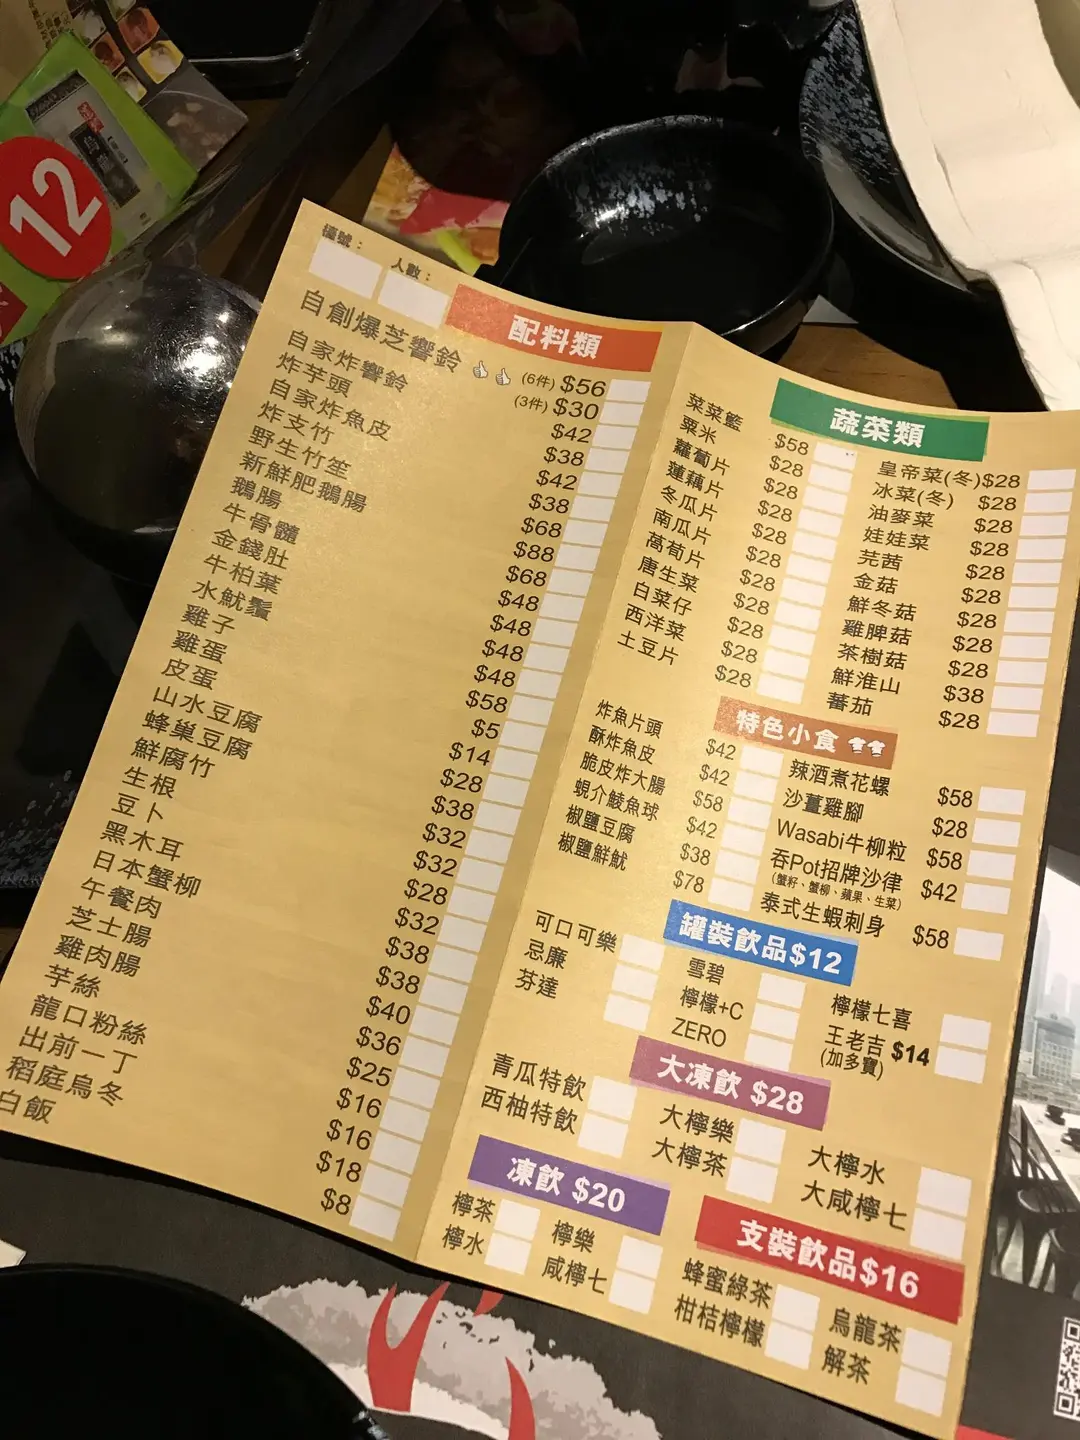 12
檯號：
人數：
配料類
自創爆芝響鈴
自家炸響鈴
炸芋頭
自家炸魚皮
炸支竹
野生竹笙
新鮮肥鵝腸
鵝腸
牛骨髓
金錢肚
牛柏葉
水魷鬚
雞子
雞蛋
皮蛋
山水豆腐
蜂巢豆腐
鮮腐竹
生根
豆卜
黑木耳
日本蟹柳
午餐肉
芝士腸
雞肉腸
芋絲
龍口粉絲
出前一丁
稻庭烏冬
白飯
(6件) $56
(3件) $30
$42
$38
$42
$38
$68
$88
$68
$48
$48
$48
$48
$58
$5
$14
$28
$38
$32
$32
$28
$32
$38
$38
$40
$36
$25
$16
$16
$18
$8
蔬菜類
菜菜籃 $58
粟米 $28
蘿蔔片 $28
蓮藕片 $28
冬瓜片 $28
南瓜片 $28
萵荀片 $28
唐生菜 $28
白菜仔 $28
西洋菜 $28
土豆片 $28
皇帝菜(冬)$28
冰菜(冬) $28
油麥菜 $28
娃娃菜 $28
芫茜 $28
金菇 $28
鮮冬菇 $28
雞脾菇 $28
茶樹菇 $28
鮮淮山 $38
蕃茄 $28
特色小食
炸魚片頭 $42
酥炸魚皮 $42
脆皮炸大腸 $58
蜆介鯪魚球 $42
椒鹽豆腐 $38
椒鹽鮮魷 $78
辣酒煮花螺 $58
沙薑雞腳 $28
Wasabi牛柳粒 $58
吞Pot招牌沙律 $42
(蟹籽、蟹柳、蘋果、生菜)
泰式生蝦刺身 $58
罐裝飲品$12
可口可樂
忌廉
芬達
雪碧
檸檬+C
ZERO
檸檬七喜
王老吉 $14
(加多寶)
大凍飲 $28
青瓜特飲
西柚特飲
大檸樂
大檸茶
大檸水
大咸檸七
凍飲 $20
檸茶
檸水
檸樂
咸檸七
支裝飲品$16
蜂蜜綠茶
柑桔檸檬
烏龍茶
解茶